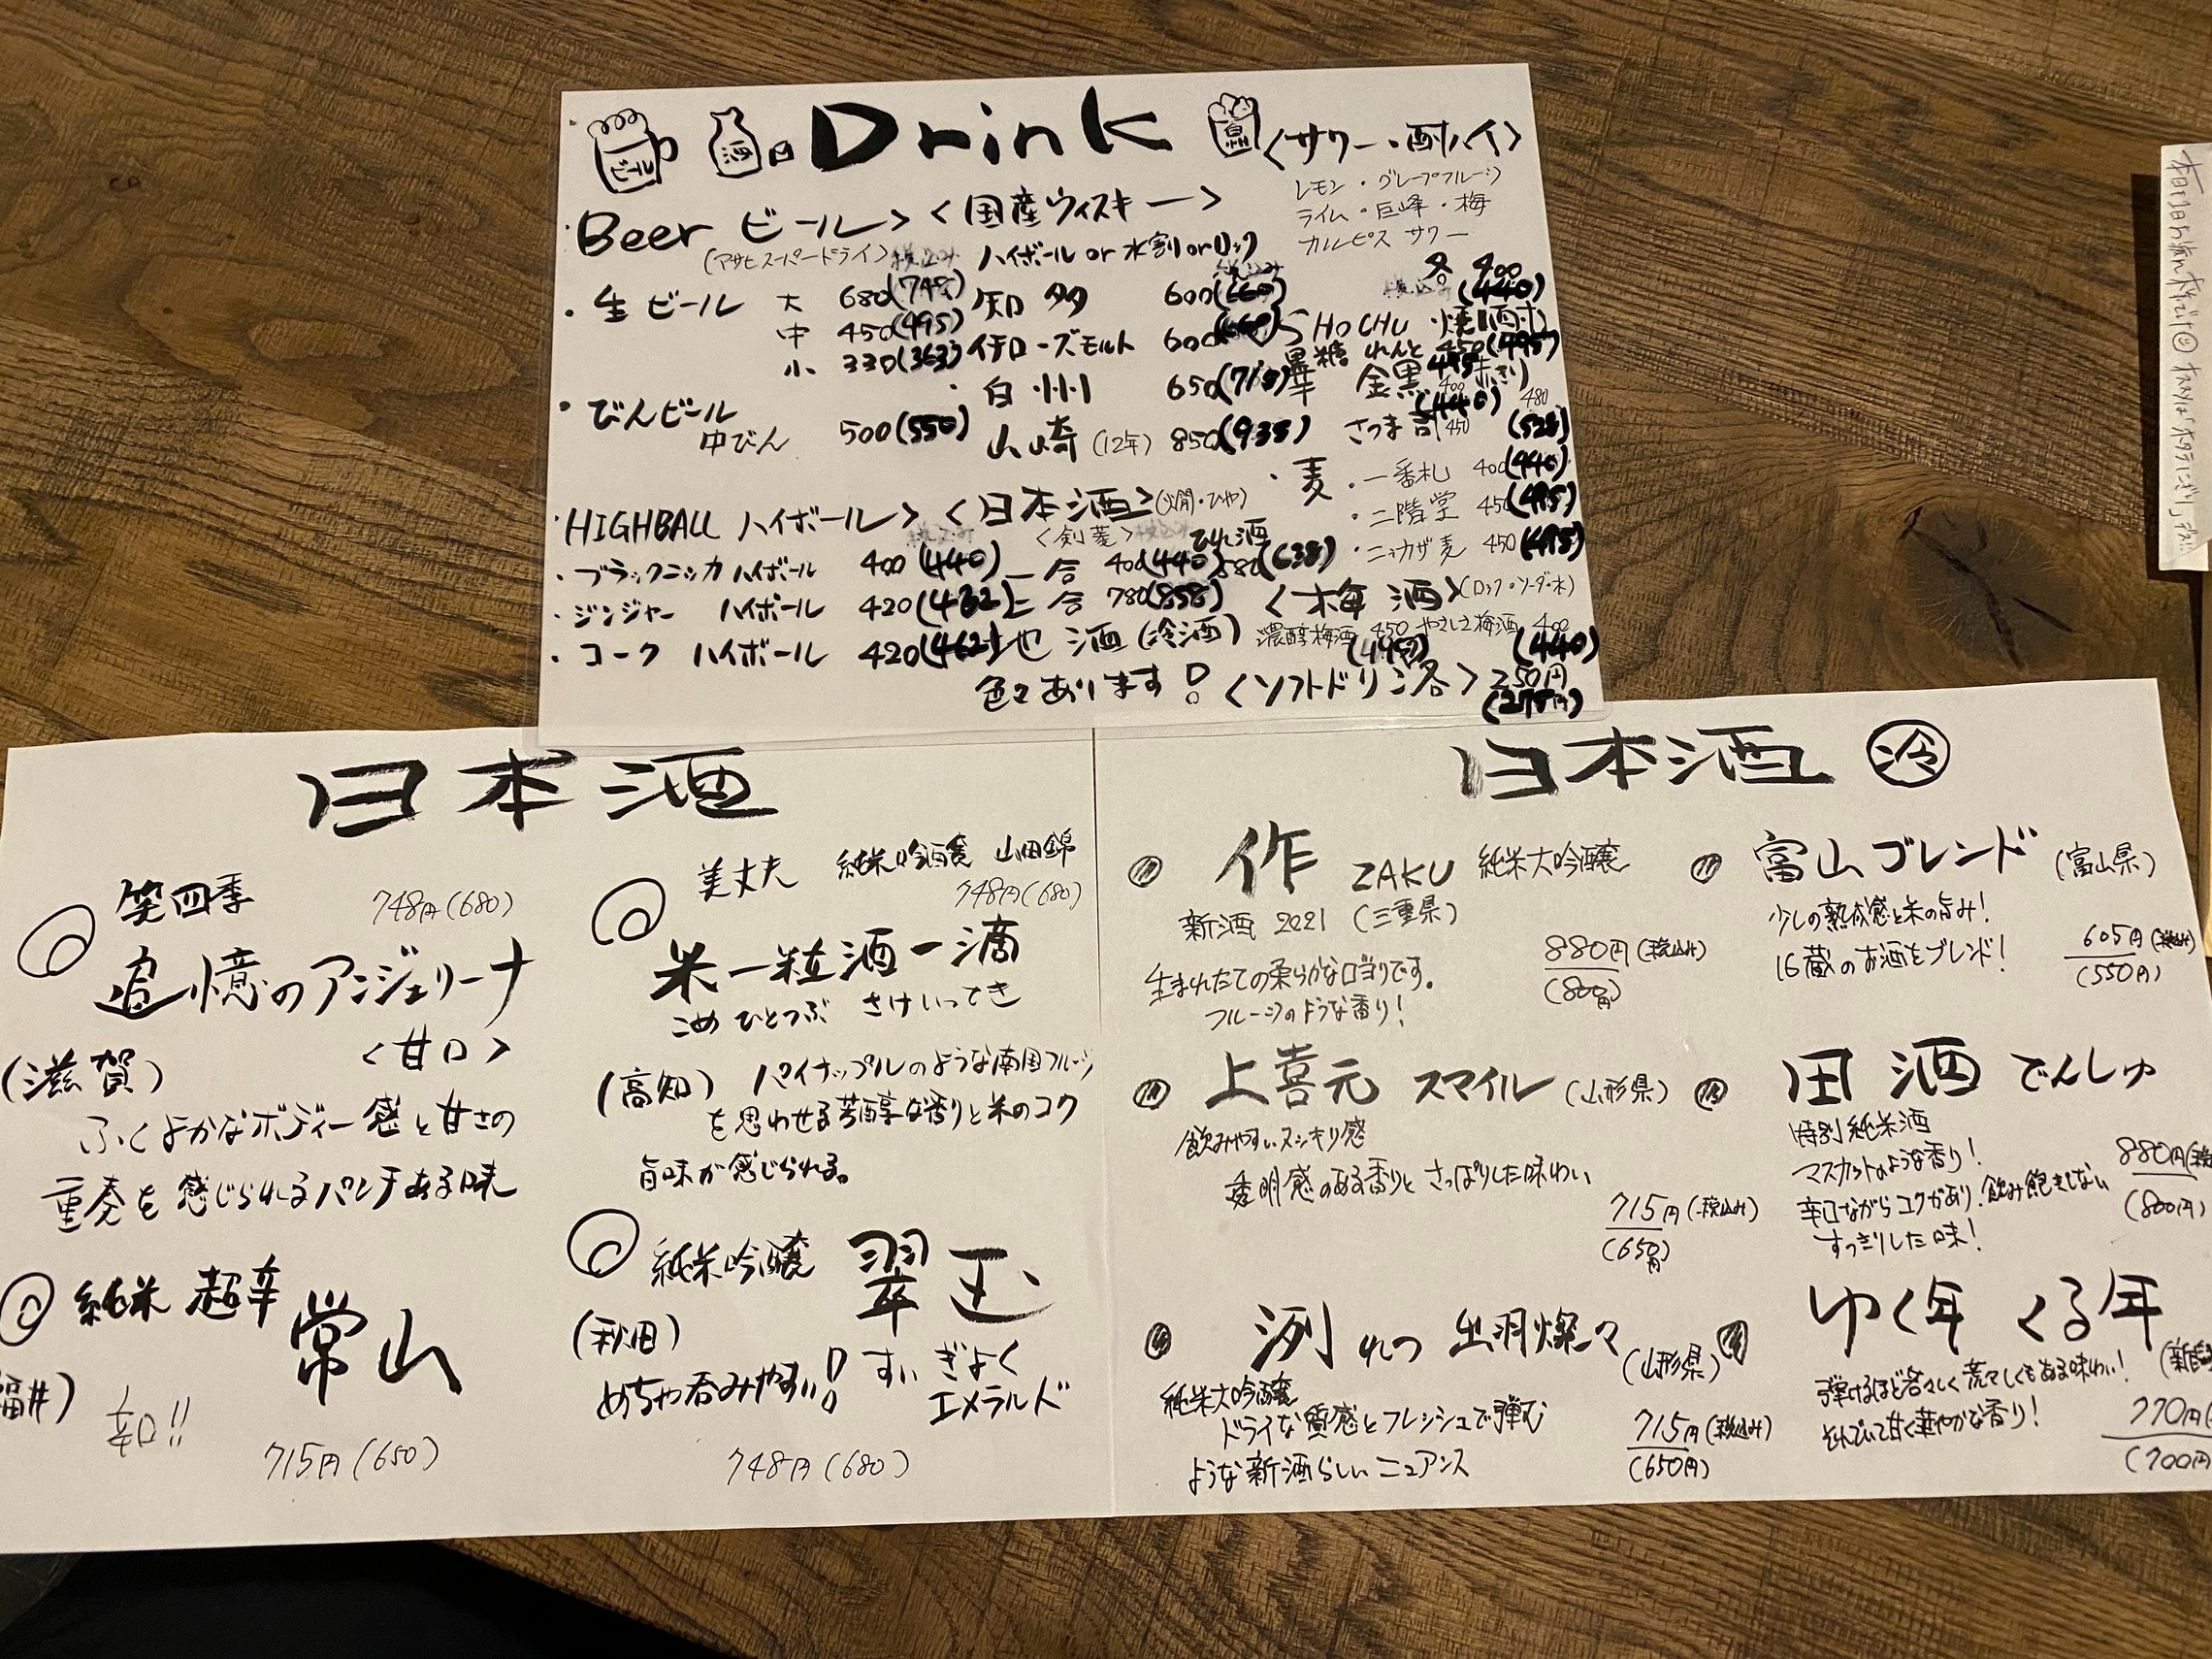 Drink
ビール
酒
Beer ビール>
(アサヒスーパードライ) 税込み
・生ビール 大 680(748)
中 450(495)
小 330(363)
・びんビール
中びん 500(550)
HIGHBALL ハイボール>
・ブラックニッカ ハイボール 400(440)
・ジンジャー ハイボール 420(462)
・コーク ハイボール 420(462)
<国産ウィスキー>
ハイボール or 水割 or ロック
知多 600(660)
イチローズモルト 600(660)
・白州 650(715)
山崎(12年) 850(935)
<日本酒>(燗・ひや)
<剣菱> ひれ酒
一合 400(440) 580(638)
二合 780(858)
地酒(冷酒)
色々あります!
<サワー・酎ハイ>
レモン・グレープフルーツ
ライム・巨峰・梅
カルピスサワー
各 400
(440)
SHOCHU 焼酎
黒糖 れんと 450(495)
金黒 400 赤きり 480
(440) (528)
さつま司 450
・麦・一番札 400(440)
・二階堂 450(495)
・ニッカザ麦 450(495)
<梅酒>(ロック・ソーダ・水)
濃醇梅酒 450 やさしい梅酒 400
(495) (440)
<ソフトドリンク各> 250円
(275円)
日本酒
笑四季 748円(680)
追憶のアンジェリーナ
<甘口>
(滋賀)
ふくよかなボディー感と甘さの
重奏を感じられるパンチある味
純米 超辛 常山
福井)
辛口!!
715円(650)
美丈夫 純米吟醸 山田錦
748円(680)
米一粒酒一滴
こめ ひとつぶ さけいってき
(高知) パイナップルのような南国フルーツ
を思わせる芳醇な香りと米のコク
旨味が感じられる。
純米吟醸 翠玉
(秋田) すい ぎょく
めちゃ呑みやすい! エメラルド
748円(680)
日本酒 冷
作 ZAKU 純米大吟醸
新酒 2021 (三重県)
880円(税込み)
(800円)
生まれたての柔らかな口当りです。
フルーツのような香り!
上喜元 スマイル (山形県)
飲みやすいスッキリ感
透明感のある香りと さっぱりした味わい
715円(税込み)
(650円)
洌 れつ 出羽燦々 (山形県)
純米大吟醸
ドライな質感とフレッシュで弾む
ような新酒らしいニュアンス
715円(税込み)
(650円)
富山ブレンド (富山県)
少しの熟成感と米の旨み!
16蔵のお酒をブレンド!
605円(税込み)
(550円)
田酒 でんしゅ
特別純米酒
マスカットのような香り!
辛口ながらコクがあり、飲み飽きしない
すっきりした味!
880円(税
(800円)
ゆく年 くる年
(新潟
弾けるほど若々しく荒々しくもある味わい!
それでいて甘く華やかな香り!
770円(
(700円